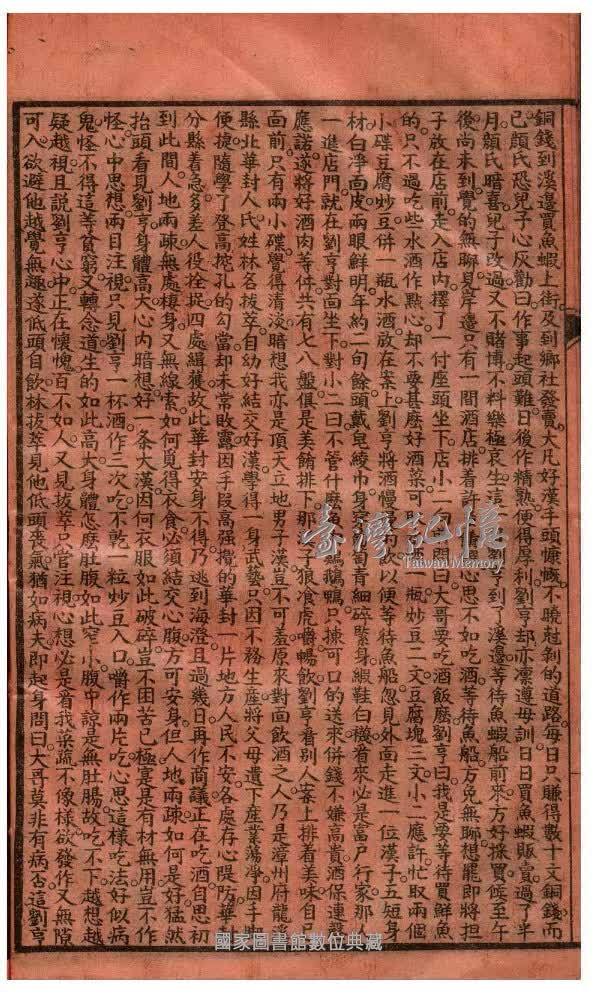 銅錢到溪邊買魚蝦上街及到鄉社發賣大凡好漢手頭慷慨不曉尅剝的道路每日只賺得數十文銅錢而
已顏氏恐兒子心灰勸曰作事起頭難日後作精熟便得厚利劉亨却亦凛遵母訓日日買魚蝦販賣過了半
月顏氏暗喜兒子改過又不賭博不料樂極哀生這 劉亨到了溪邊等待魚蝦船前來方好採買候至午
後尚未到覺的無聊見岸邊只有一間酒店排着許 心思不如吃酒等待魚船方免無聊想罷即將担
子放在店前走入店內擇了一付座頭坐下店小二 問曰大哥要吃酒飯麽劉亨曰我是要等待買鮮魚
的只不過吃些水酒作點心却不要甚麽好酒菜可 酒一瓶炒豆二文豆腐塊三文小二應許忙取兩個
小碟豆腐炒豆併一瓶水酒放在案上劉亨將酒慢 飲以便等待魚船忽見外面走進一位漢子五短身
材白淨面皮兩眼鮮明年約二旬餘頭戴皂綾巾身穿 青細碎緊身緞鞋白襪看來必是富戶行家那
一進店門就在劉亨對面坐下對小二曰不管什麽魚 鷄鵝鴨只揀可口的送來併錢不嫌高貴酒保連聲
應諾遂將好酒肉等件共有七八盤俱是美餚排下那 子狼飡虎嚼暢飲劉亨看別人案上排着美味自
面前只有兩小碟覺得清淡暗想我亦是頂天立地男子漢豈不可羞原來對面飲酒之人乃是漳州府龍溪
縣北華封人氏姓林名拔萃自幼好結交好漢學得一身武藝只因不務生產將父母遺下產業蕩淨因手脚
便捷隨學了登高挖孔的勾當却未常敗露因手段高强攪的華封一片地方人民不安各處存心隄防華
分縣着急多差人役拴捉四處緝獲故此華封安身不得乃逃到海澄且過幾日再作商議正在吃酒自思初
到此間人地兩疎無處棲身又無線索如何覓得衣食必須結交心腹方可安身但人地兩疎如何是好猛然
抬頭看見劉亨身體高大心內暗想好一条大漢因何衣服如此破碎豈不困苦已極寔是有材無用豈不作
怪心中思想兩目注視只見劉亨一杯酒作三次吃不乾一粒炒豆入口嚼作兩片吃心思這樣吃法好似病
鬼怪不得這等貧窮又轉念道生的如此高大身體怎麽肚腹如此窄小腹中諒是無肚腸故吃不下越想越
疑越視且說劉亨心中正在懷愧百不如人又見拔萃只管注視心想必是看我菜蔬不像樣欲發作又無隙
可入欲避他越覺無趣遂低頭自飲林拔萃見他低頭喪氣猶如病夫即起身問曰大哥莫非有病否這劉亨
臺灣記憶
Taiwan Memory
國家圖書館數位典藏